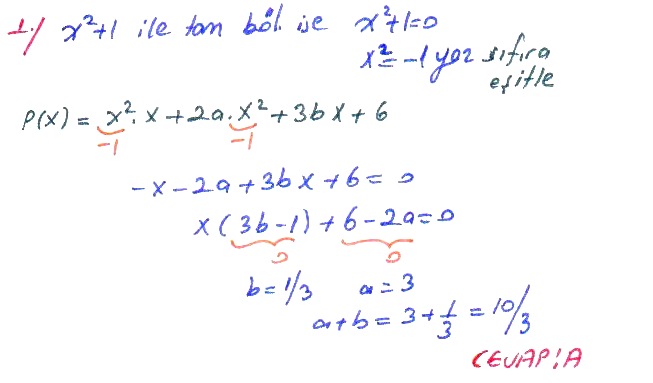 1-/ x²+1 ile tam böl. ise x²+1=0
x²=-1 yaz sıfıra
eşitle
P(x) = x².x+2a.x²+3bx+6
-1 -1
-x-2a+3bx+6=0
x(3b-1)+6-2a=0
0 0
b=1/3 a=3
a+b=3+1/3=10/3
CEVAP:A